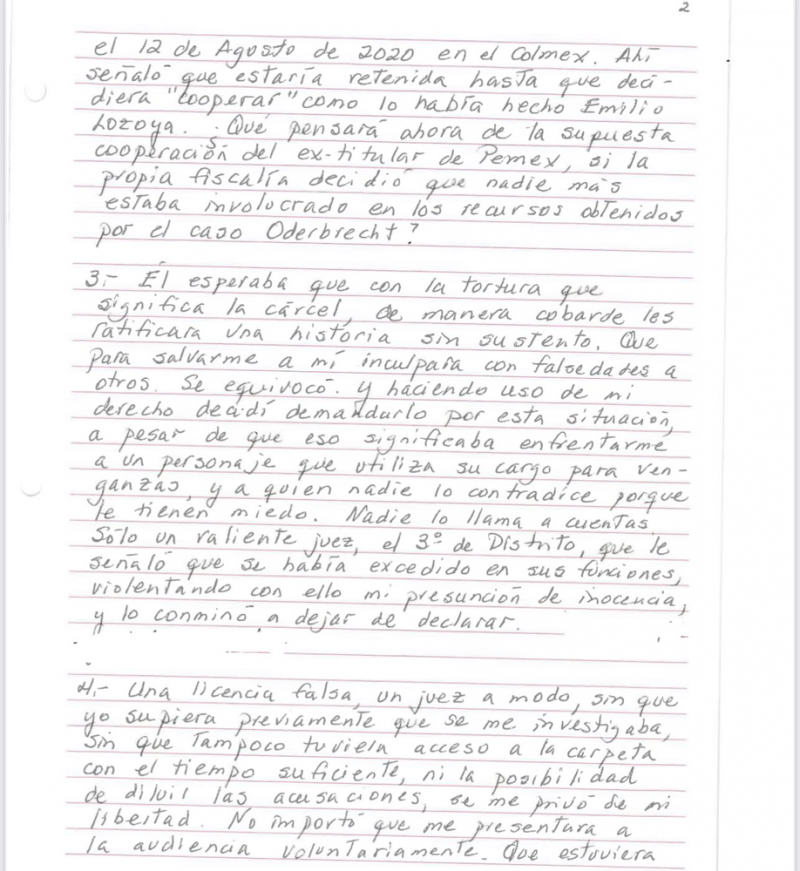 2
el 12 de Agosto de 2020 en el Colmex. Ahí
señaló que estaría retenida hasta que deci-
diera "cooperar" como lo había hecho Emilio
Lozoya. ¿Qué pensará ahora de la supuesta
cooperación del ex-titular de Pemex, si la
propia fiscalía decidió que nadie más
estaba involucrado en los recursos obtenidos
por el caso Oderbrecht?
3.- Él esperaba que con la tortura que
significa la cárcel, de manera cobarde les
ratificara una historia sin sustento. Que
para salvarme a mí inculpara con falsedades a
otros. Se equivocó. Y haciendo uso de mi
derecho decidí demandarlo por esta situación,
a pesar de que eso significaba enfrentarme
a un personaje que utiliza su cargo para ven-
ganzas, y a quien nadie lo contradice porque
le tienen miedo. Nadie lo llama a cuentas
Sólo un valiente juez, el 3º de Distrito, que le
señaló que se había excedido en sus funciones,
violentando con ello mi presunción de inocencia,
y lo conminó a dejar de declarar.
4.- Una licencia falsa, un juez a modo, sin que
yo supiera previamente que se me investigaba,
sin que tampoco tuviera acceso a la carpeta
con el tiempo suficiente, ni la posibilidad
de diluir las acusaciones, se me privó de mi
libertad. No importó que me presentara a
la audiencia voluntariamente. Que estuviera